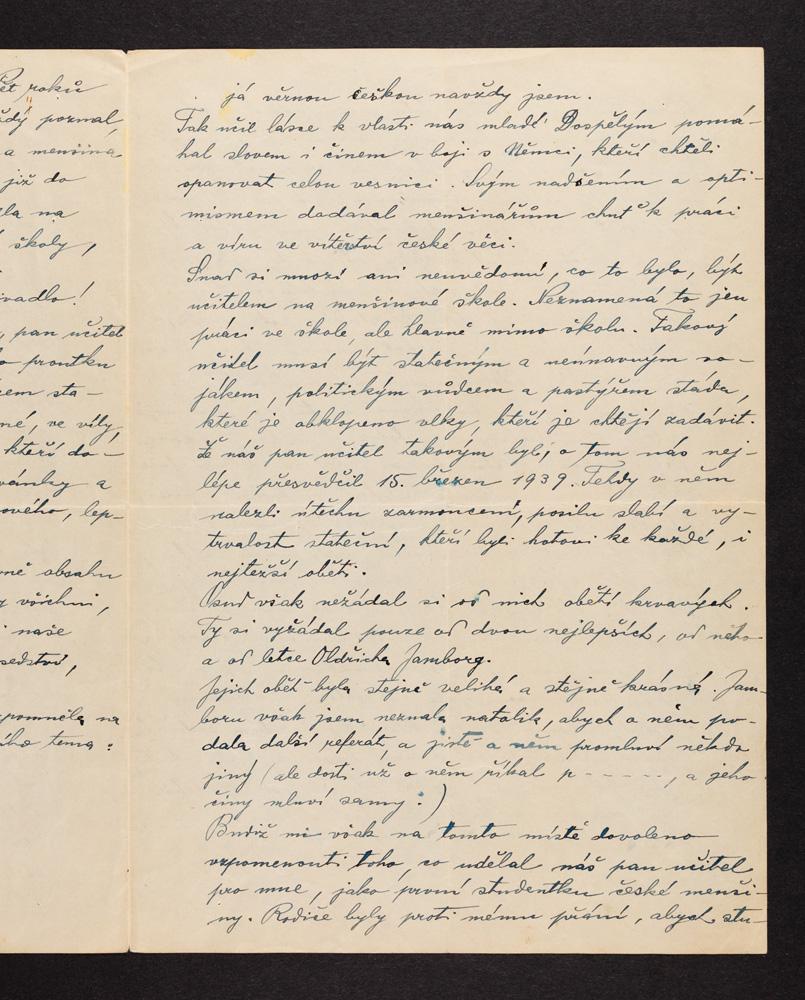 Pět roků
ždý poznal,
a menšina
již do
la na
školy,
ivadlo!
, pan učitel
o proutku
em sta-
né, ve víly,
kteří do-
vánky a
ového, lep-
ně obsahu
y všichni,
i naše
sedství,
pomněla na
ého tema:
já věrnou českou navždy jsem.
Tak učil lásce k vlasti nás mladé. Dospělým pomá-
hal slovem i činem v boji s Němci, kteří chtěli
opanovat celou vesnici. Svým nadšením a opti-
mismem dodával menšinářům chuť k práci
a víru ve vítězství české věci.
Snad si mnozí ani neuvědomí, co to bylo, být
učitelem na menšinové škole. Neznamená to jen
práci ve škole, ale hlavně mimo školu. Takový
učitel musí být statečným a neúnavným vo-
jákem, politickým vůdcem a pastýřem stáda,
které je obklopeno vlky, kteří je chtějí zadávit.
Že náš pan učitel takovým byl, o tom nás nej-
lépe přesvědčil 15. březen 1939. Tehdy v něm
nalezli útěchu zarmoucení, posilu slabí a vy-
trvalost stateční, kteří byli hotovi ke každé, i
nejtežší oběti.
Osud však nežádal si od nich obětí krvavých.
Ty si vyžádal pouze od dvou nejlepších, od něho
a od letce Oldřicha Jamborg.
Jejich oběť byla stejně veliká a stejně krásná. Jam-
boru však jsem neznala natolik, abych o něm po-
dala další referát, a jistě o něm promluví někdo
jiný (ale dosti už o něm říkal p - - - - -, a jeho
činy mluví samy.)
Budiž mi však na tomto místě dovoleno
vzpomenouti toho, co udělal náš pan učitel
pro mne, jako první studentku české menši-
ny. Rodiče byly proti mému přání, abych stu-